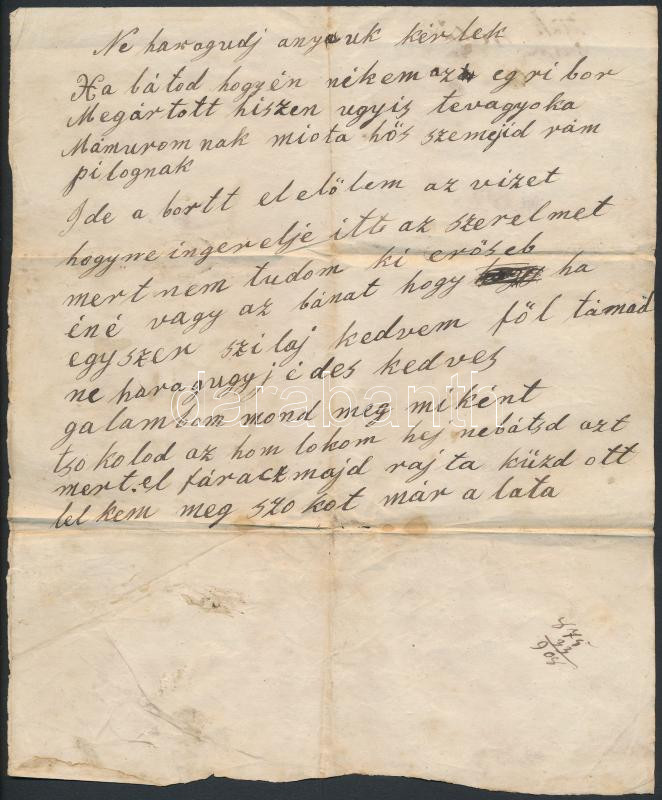 Ne haragudj anyuk kérlek
Ha bátod hogyén nékem azt egri bor
Megártott hiszen ugyis tevagyoka
Mámurom nak miota hős szemejid rám
pilognak
Ide a bortt el előlem az vizet
hogyne ingerelje itt az szerelmet
mert nem tudom ki erőseb
éné vagy az bánat hogy ha
egyszer szilaj kedvem föl támad
ne haragugyj édes kedves
galambom mond meg miként
tsokolod az hom lokom hej nebátsd azt
mert el fáraczmajd rajta küzd ott
lelkem meg szokot már a lata
875
33
903
darabanth